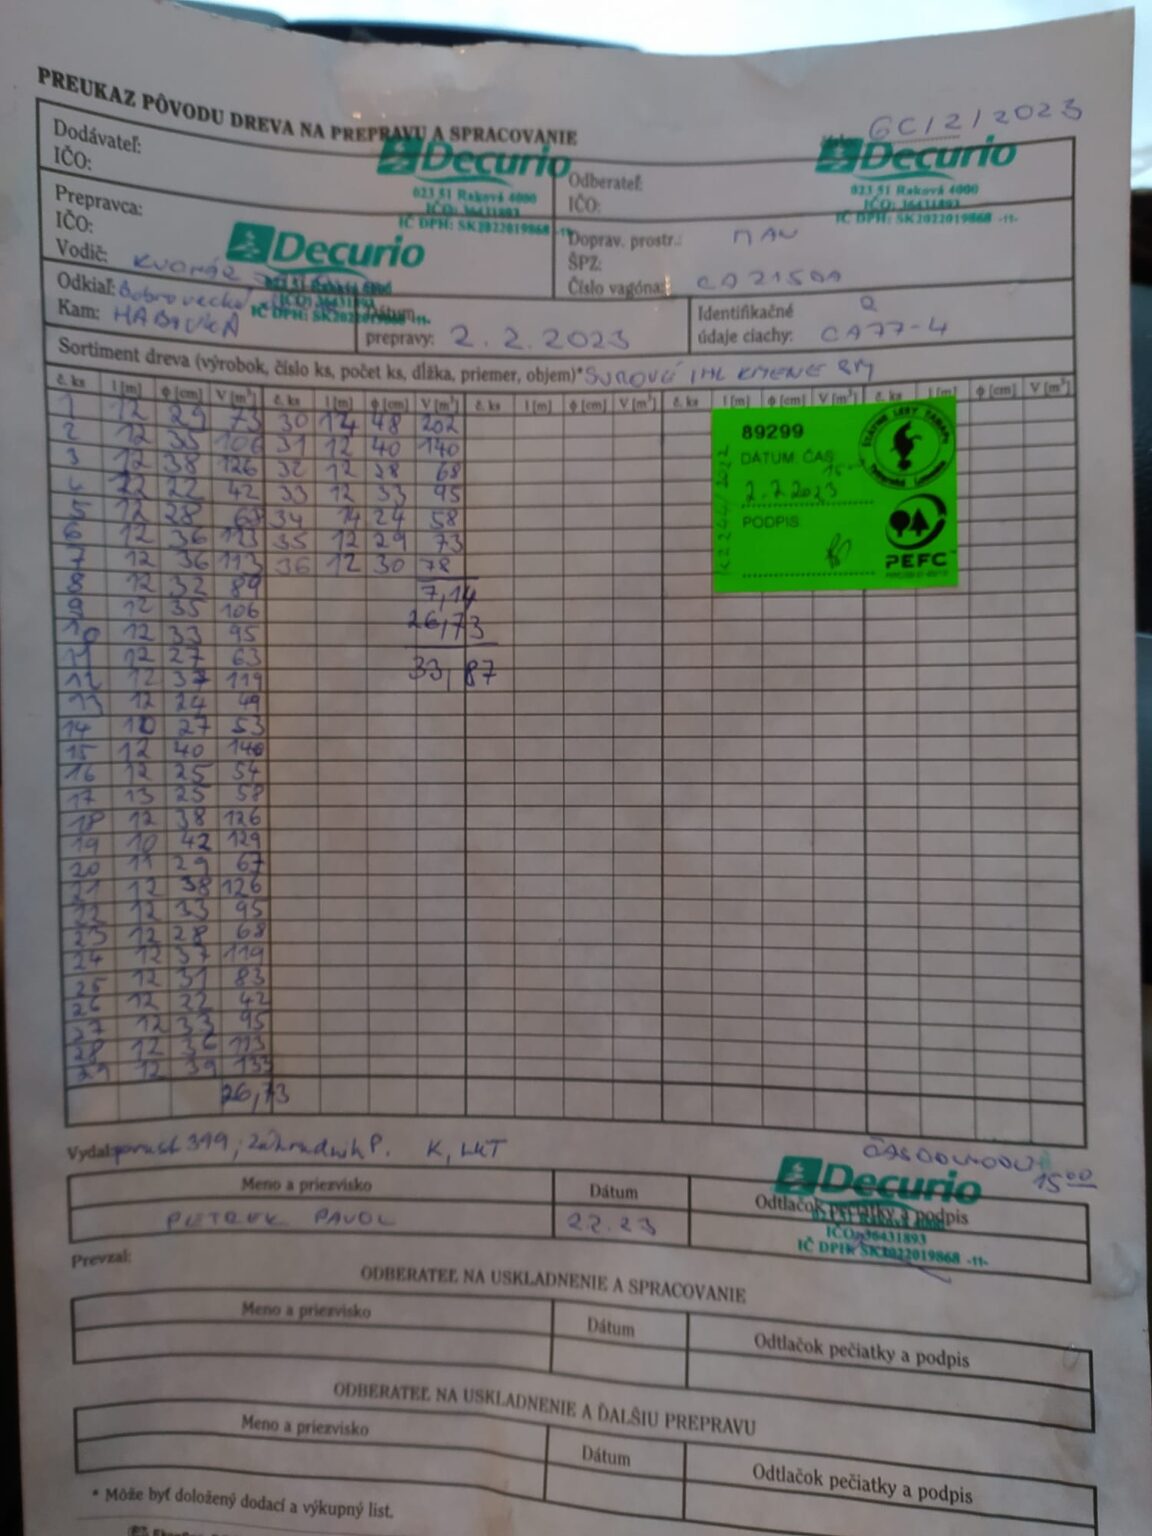 PREUKAZ PÔVODU DREVA NA PREPRAVU A SPRACOVANIE
GC/2/2023
Dodávateľ:
IČO:
Decurio
023 51 Raková 4000
IČO: 36431893
IČ DPH: SK2022019868 -11-
Odberateľ:
IČO:
Decurio
023 51 Raková 4000
IČO: 36431893
IČ DPH: SK2022019868 -11-
Prepravca:
IČO:
Vodič:
Decurio
IČ DPH: SK2022019868 -11-
Doprav. prostr.: MAN
ŠPZ:
Číslo vagóna: CA215DA
Odkiaľ: Bobrovecká
Kam: HABOVKA
Dátum
prepravy: 2.2.2023
Identifikačné
údaje ciachy: CA77-4
Sortiment dreva (výrobok, číslo ks, počet ks, dĺžka, priemer, objem)* SUROVÉ IHL KMENE SM
č. ks l [m] ϕ [cm] V [m³] č. ks l [m] ϕ [cm] V [m³] č. ks l [m] ϕ [cm] V [m³] č. ks l [m] ϕ [cm] V [m³] č. ks l [m] ϕ [cm] V [m³]
1 12 29 73 30 14 48 202
2 12 35 106 31 12 40 140
3 12 38 126 32 12 28 68
4 12 22 42 33 12 33 95
5 12 28 68 34 14 24 58
6 12 36 113 35 12 29 73
7 12 36 113 36 12 30 78
8 12 32 89 7,14
9 12 35 106 26,73
10 12 33 95
11 12 27 63 33,87
12 12 37 119
13 12 24 49
14 10 27 53
15 12 40 140
16 12 25 54
17 13 25 58
18 12 38 126
19 10 42 129
20 11 29 67
21 12 38 126
22 12 33 95
23 12 28 68
24 12 37 119
25 12 31 83
26 12 22 42
27 12 33 95
28 12 36 113
29 12 39 133
26,73
89299
DÁTUM ČAS
2.2.2023
PODPIS
PEFC
Vydal: porast 399, Záhradník P.
ČAS ODVOZU
15⁰⁰
Meno a priezvisko Dátum Odtlačok pečiatky a podpis
PETREK PAVOL 2.2.23
Decurio
IČO: 36431893
IČ DPH: SK2022019868 -11-
Prevzal:
ODBERATEĽ NA USKLADNENIE A SPRACOVANIE
Meno a priezvisko Dátum Odtlačok pečiatky a podpis
ODBERATEĽ NA USKLADNENIE A ĎALŠIU PREPRAVU
Meno a priezvisko Dátum Odtlačok pečiatky a podpis
* Môže byť doložený dodací a výkupný list.